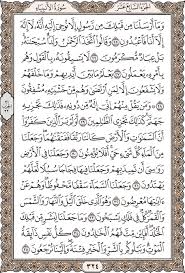 الجزء السابع عشر سورة الأنبياء
وَمَآ أَرۡسَلۡنَا مِن قَبۡلِكَ مِن رَّسُولٍ إِلَّا نُوحِيٓ إِلَيۡهِ أَنَّهُۥ لَآ إِلَٰهَ
إِلَّآ أَنَا۠ فَٱعۡبُدُونِ ٢٥ وَقَالُواْ ٱتَّخَذَ ٱلرَّحۡمَٰنُ وَلَدٗاۗ سُبۡحَٰنَهُۥۚ
بَلۡ عِبَادٞ مُّكۡرَمُونَ ٢٦ لَا يَسۡبِقُونَهُۥ بِٱلۡقَوۡلِ وَهُم
بِأَمۡرِهِۦ يَعۡمَلُونَ ٢٧ يَعۡلَمُ مَا بَيۡنَ أَيۡدِيهِمۡ وَمَا خَلۡفَهُمۡ
وَلَا يَشۡفَعُونَ إِلَّا لِمَنِ ٱرۡتَضَىٰ وَهُم مِّنۡ خَشۡيَتِهِۦ
مُشۡفِقُونَ ٢٨ وَمَن يَقُلۡ مِنۡهُمۡ إِنِّيٓ إِلَٰهٞ مِّن دُونِهِۦ فَذَٰلِكَ
نَجۡزِيهِ جَهَنَّمَۚ كَذَٰلِكَ نَجۡزِي ٱلظَّٰلِمِينَ ٢٩ أَوَلَمۡ يَرَ ٱلَّذِينَ كَفَرُوٓاْ
أَنَّ ٱلسَّمَٰوَٰتِ وَٱلۡأَرۡضَ كَانَتَا رَتۡقٗا فَفَتَقۡنَٰهُمَاۖ وَجَعَلۡنَا
مِنَ ٱلۡمَآءِ كُلَّ شَيۡءٍ حَيٍّۚ أَفَلَا يُؤۡمِنُونَ ٣٠ وَجَعَلۡنَا فِي ٱلۡأَرۡضِ
رَوَٰسِيَ أَن تَمِيدَ بِهِمۡ وَجَعَلۡنَا فِيهَا فِجَاجٗا سُبُلٗا لَّعَلَّهُمۡ
يَهۡتَدُونَ ٣١ وَجَعَلۡنَا ٱلسَّمَآءَ سَقۡفٗا مَّحۡفُوظٗاۖ وَهُمۡ عَنۡ
ءَايَٰتِهَا مُعۡرِضُونَ ٣٢ وَهُوَ ٱلَّذِي خَلَقَ ٱلَّيۡلَ وَٱلنَّهَارَ وَٱلشَّمۡسَ
وَٱلۡقَمَرَۖ كُلّٞ فِي فَلَكٖ يَسۡبَحُونَ ٣٣ وَمَا جَعَلۡنَا لِبَشَرٖ مِّن قَبۡلِكَ
ٱلۡخُلۡدَۖ أَفَإِيْن مِّتَّ فَهُمُ ٱلۡخَٰلِدُونَ ٣٤ كُلُّ نَفۡسٖ ذَآئِقَةُ
ٱلۡمَوۡتِۗ وَنَبۡلُوكُم بِٱلشَّرِّ وَٱلۡخَيۡرِ فِتۡنَةٗۖ وَإِلَيۡنَا تُرۡجَعُونَ ٣٥
٣٢٤